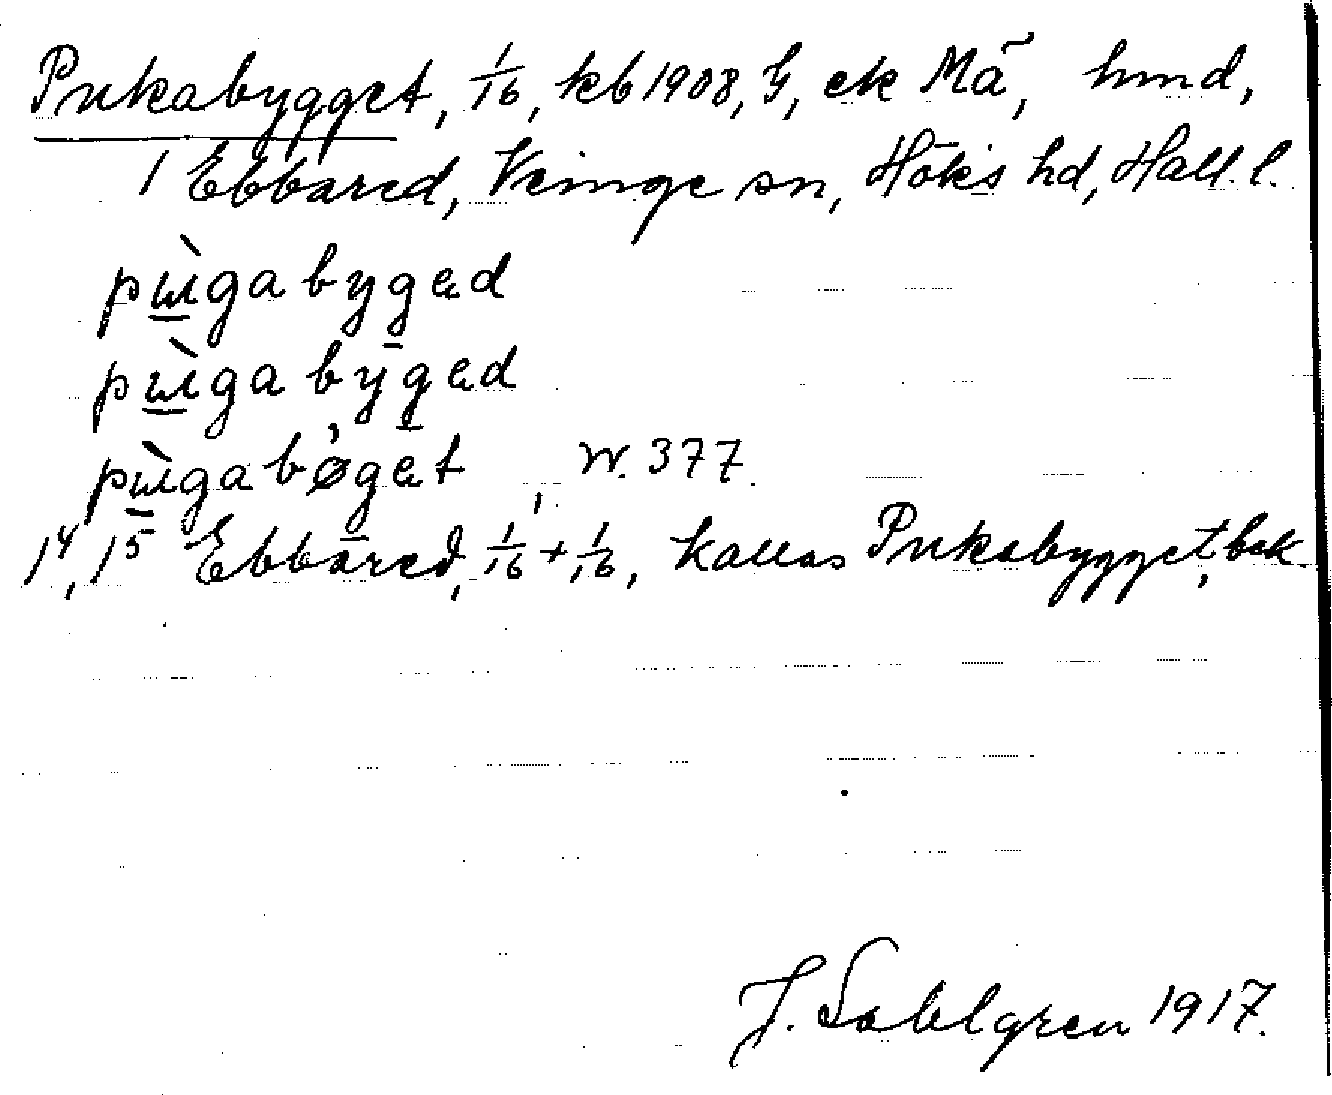 Pukabygget, 1/16, kb 1908, G, ek Mã, hmd,
1 Ebbared, Veinge sn, Höks hd, Hall. l.
pɯ̀gabygɐd
pɯ̀gabygɐd
pɯ̀gabøgɐt, W. 377.
1⁴, 1⁵ Ebbared, 1/16 + 1/16, kallas Pukabygget, bek.
J. Sahlgren 1917.